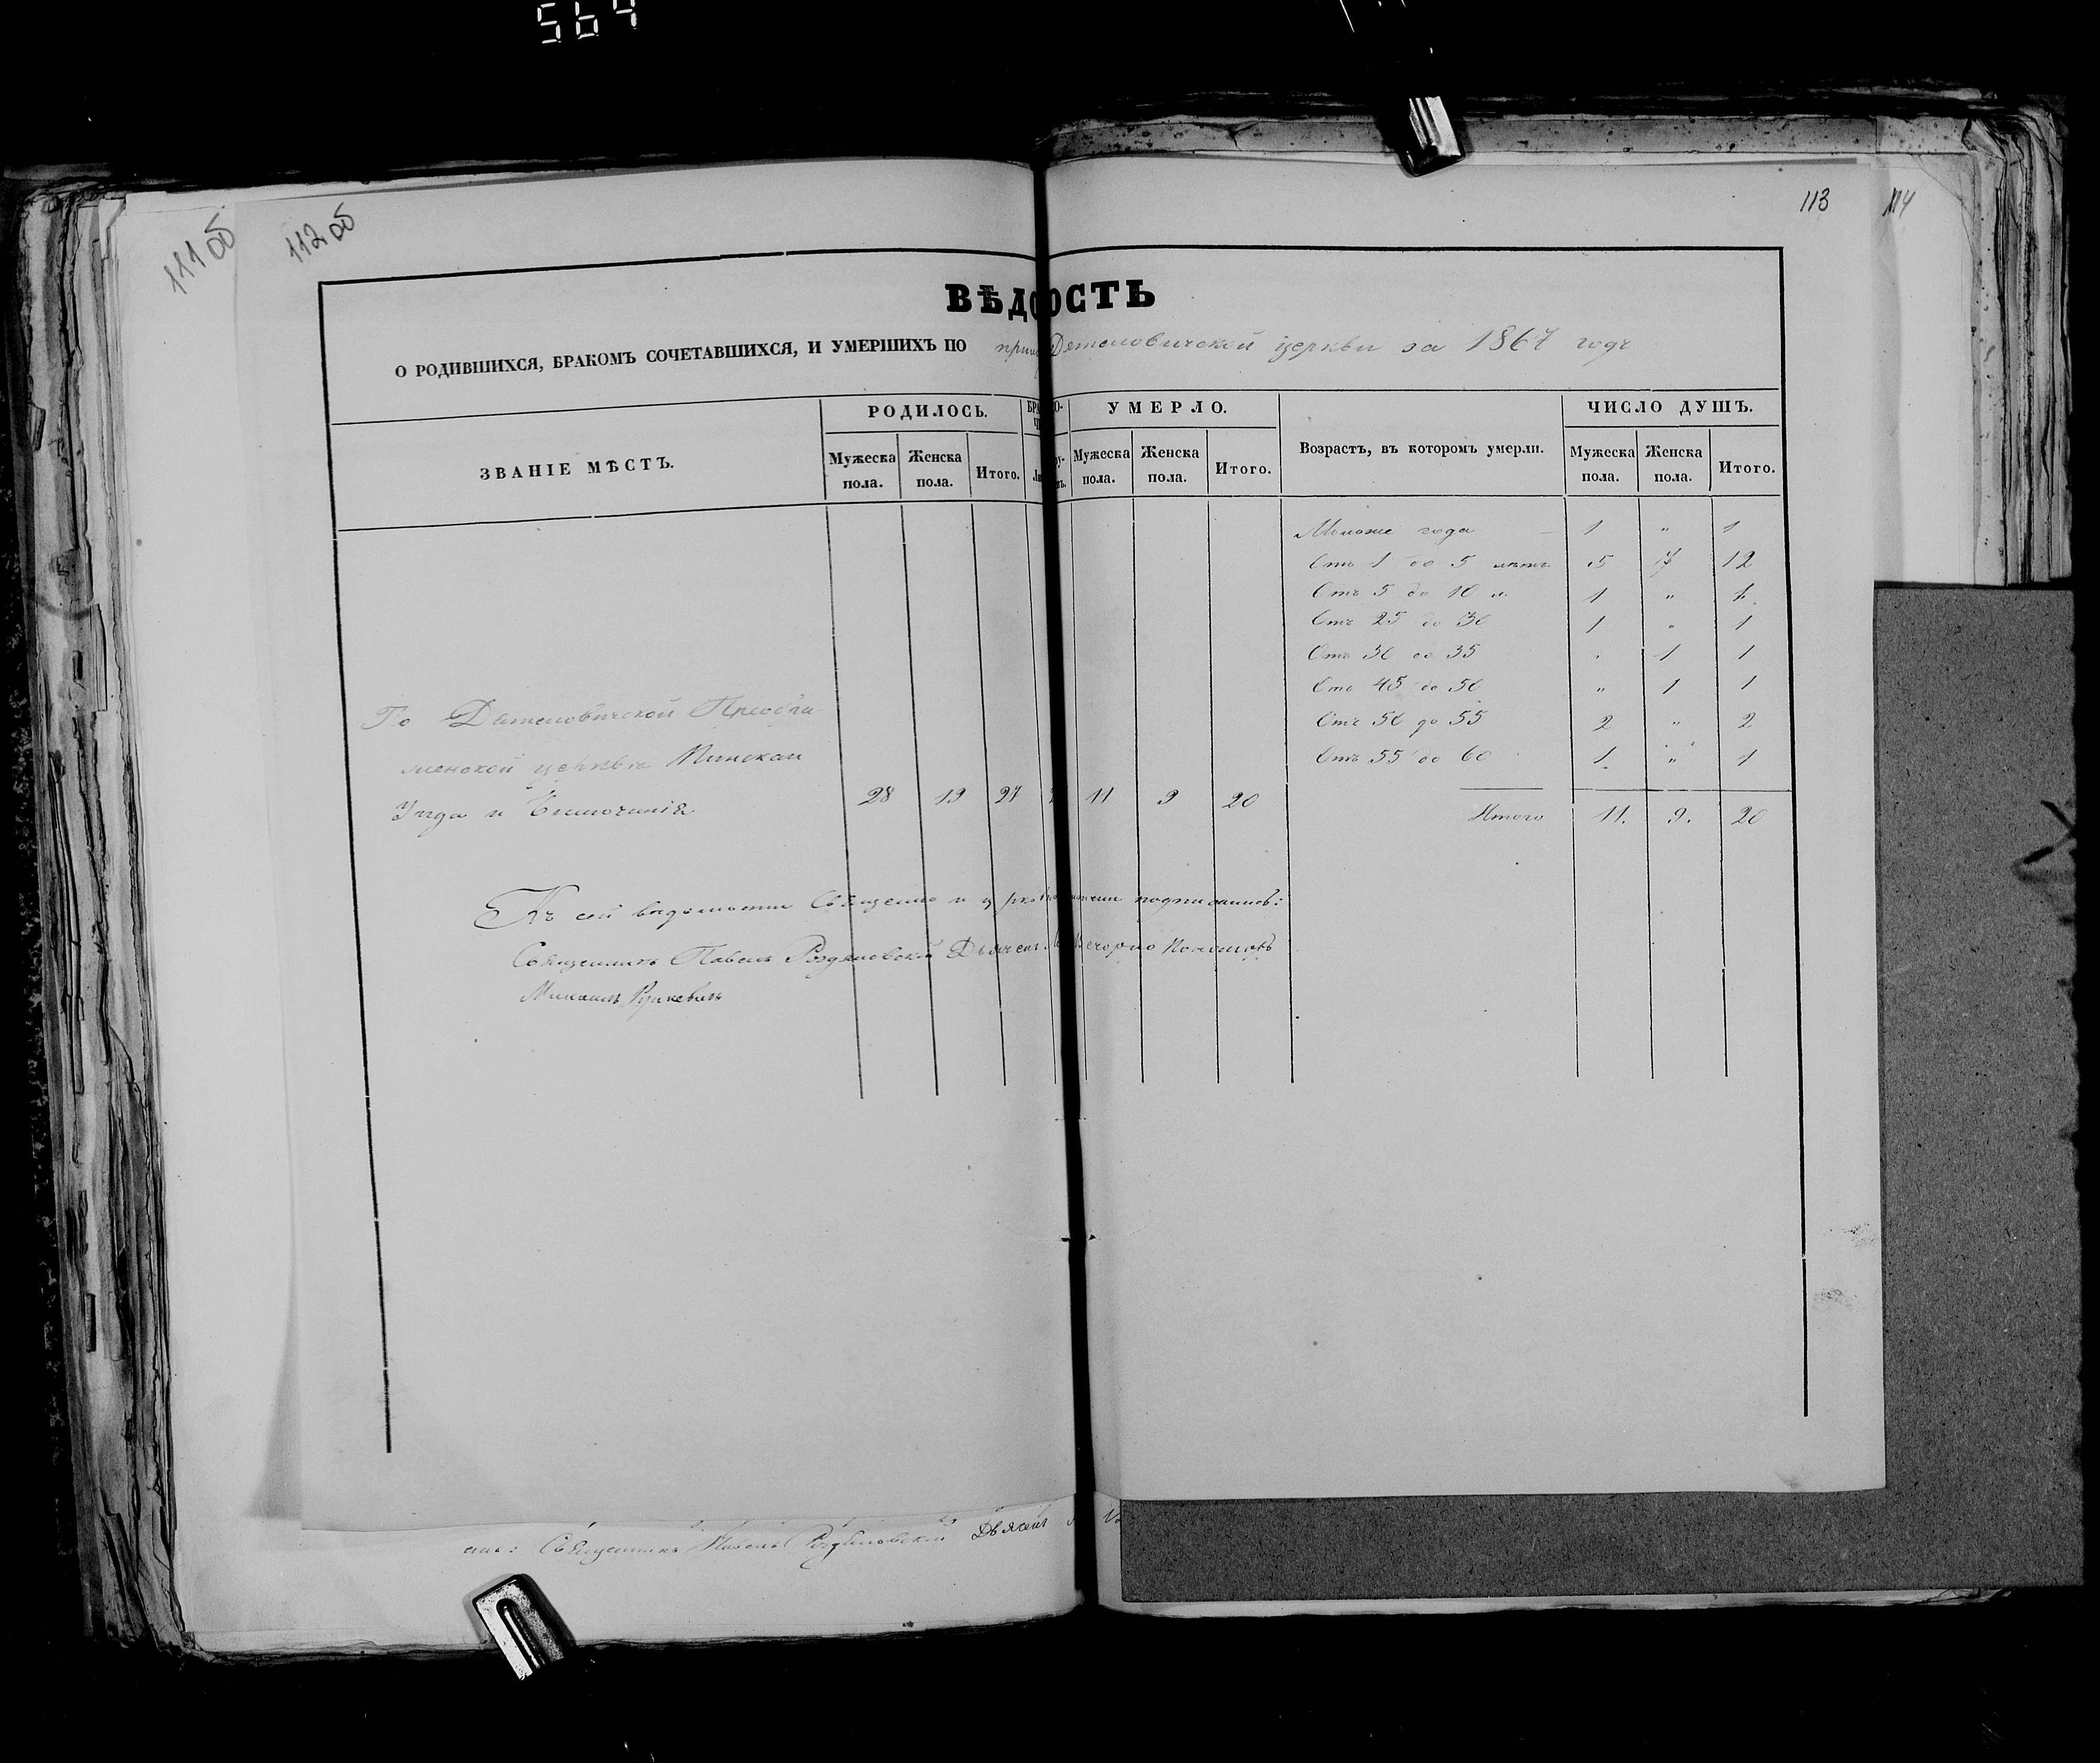 564
111об
112об
113
114
ВѢДОСТЬ
О РОДИВШИХСЯ, БРАКОМЪ СОЧЕТАВШИХСЯ, И УМЕРШИХЪ ПО Дятеловичской церкви за 1867 годъ
РОДИЛОСЬ. УМЕРЛО. ЧИСЛО ДУШЪ.
ЗВАНІЕ МѢСТЪ. Мужеска пола. Женска пола. Итого. Мужеска пола. Женска пола. Итого. Возрастъ, въ которомъ умерли. Мужеска пола. Женска пола. Итого.
Моложе года — 1 " 1
Отъ 1 до 5 лѣтъ 5 7 12
Отъ 5 до 10 л. 1 " 1
Отъ 25 до 30 1 " 1
Отъ 30 до 35 " 1 1
Отъ 45 до 50 " 1 1
Отъ 50 до 55 2 " 2
Отъ 55 до 60 1 " 1
По Дятеловичской Преобра
женской церкви Пинскаго
Уѣзда и Благочинія 28 19 27 11 9 20
Итого 11. 9. 20
Къ сей вѣдомости Священно и подписались:
Священникъ Павелъ Дьячекъ Пономарь
Михаилъ
Священникъ Павелъ Дьячекъ